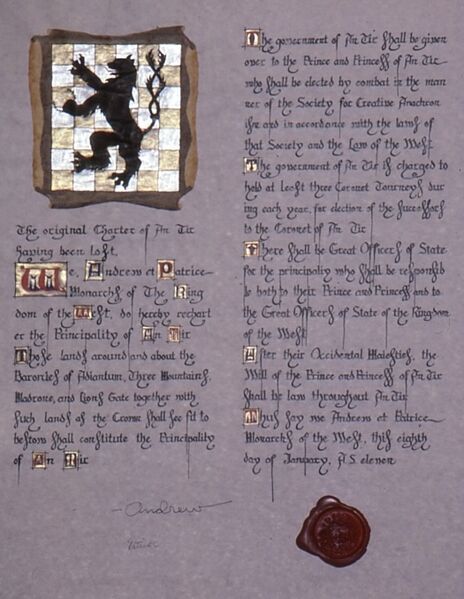 The original Charter of An Tir
having been lost,
We, Andrew et Patrice
Monarchs of The King
dom of the West, do hereby rechart
er the Principality of An Tir
Those lands around and about the
Baronies of Adiantum, Three Mountains,
Madrone, and Lions Gate together with
such lands as the Crown shall see fit to
bestow shall constitute the Principality
of An Tir
The government of An Tir shall be given
over to the Prince and Princess of An Tir
who shall be elected by combat in the man
ner of the Society for Creative Anachron
ism and in accordance with the laws of
that Society and the Law of the West.
The government of An Tir is charged to
hold at least three Coronet Tourneys dur
ing each year, for election of the successors
to the Coronet of An Tir
There shall be Great Officers of State
for the principality who shall be responsib
le both to their Prince and Princess and to
the Great Officers of State of the Kingdom
of the West
After their Occidental Majesties, the
Will of the Prince and Princess of An Tir
shall be law throughout An Tir
Thus say we Andrew et Patrice
Monarchs of the West, this eighth
day of January, A.S. eleven
Andrew
Patrice